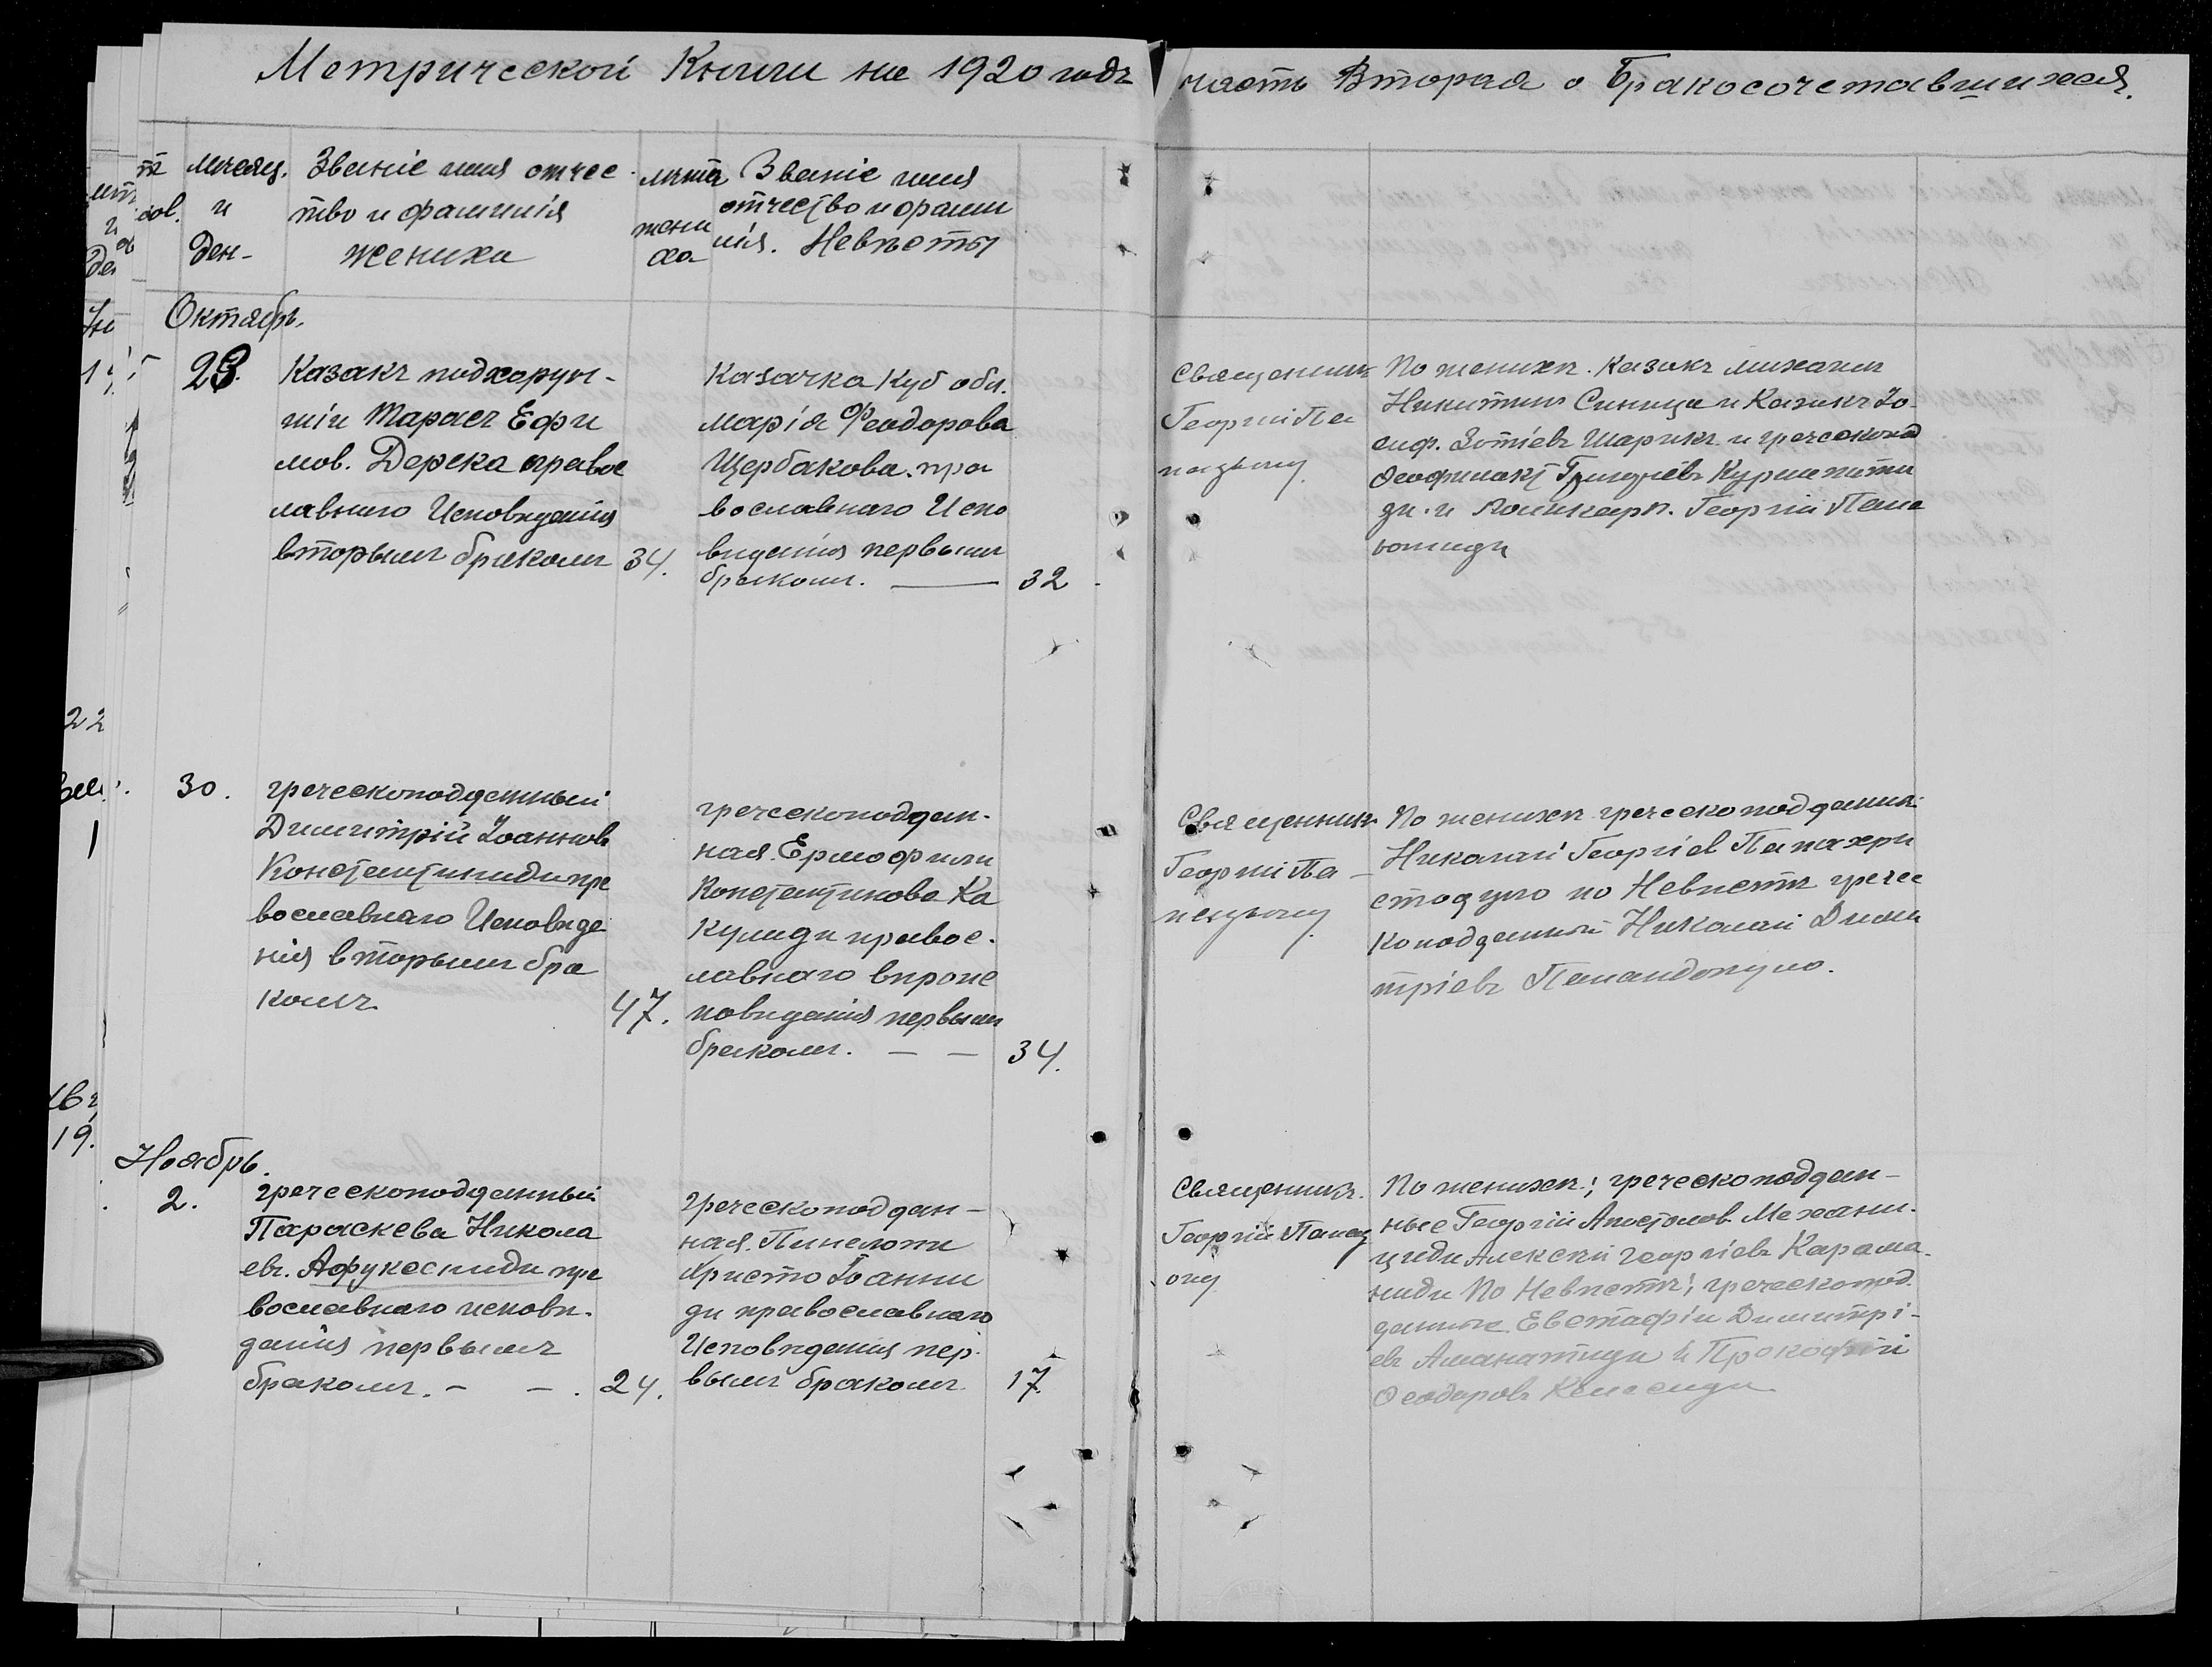 Метрической Книги на 1920 годъ часть Вторая о Бракосочетавшихся.
мѣсяц. и ден-
Званіе имя отчес
тво и фамилія
жениха
лѣта
жени
ха
Званіе имя
отчество и фами
лія. Невѣсты
Октябрь.
23.
Казакъ подхорун-
жій Тарасъ Ефи
мов. Дерека правос
лавнаго Исповѣданія
вторымъ бракомъ
34.
Казачка Куб обл.
марія Феодорова
Щербакова. пра
вославнаго Испо
вѣданія первымъ
бракомъ.
32
Священникъ
Георгій Па
По женихѣ. Казакъ михаилъ
Никитинъ Синица и Казакъ Іо
сиф. Зотіевъ Шарикъ и греческопод
Феофилактъ Григоріевъ
ди. и Поликарп. Георгій Пана
30.
греческоподданный
Димитрій Іоанновъ
Константиниди пра
вославнаго Исповѣда
нія вторымъ бра
комъ
47.
греческоподдан-
ная. Ермофили
Константинова Ка
кулиди правос-
лавнаго вѣроис
повѣданія первым
бракомъ.
34.
Священникъ
Георгій Па-
По женихѣ греческоподданн:
Николай Георгіев Папахри
стодуло по Невѣстѣ гречес
коподданный Николай Дими
тріевъ Папандопуло.
Ноябрь.
2.
греческоподданный
Параскева Никола
евъ. Афуксениди пра
вославнаго исповѣ-
данія первымъ
бракомъ. - - .
24.
греческоподдан-
ная. Пинелопи
Христо Іоанни
ди православнаго
Исповѣданія пер-
вымъ бракомъ
17.
Священникъ.
Георгій
По женихѣ: греческоподдан-
ные Георгій Апостолов. Механи-
циди Алексѣй Георгіевъ Карама-
ниди По Невѣстѣ: греческопод.
данные Евстафій Димитрі-
евъ Аманатиди и Прокофій
Феодоровъ